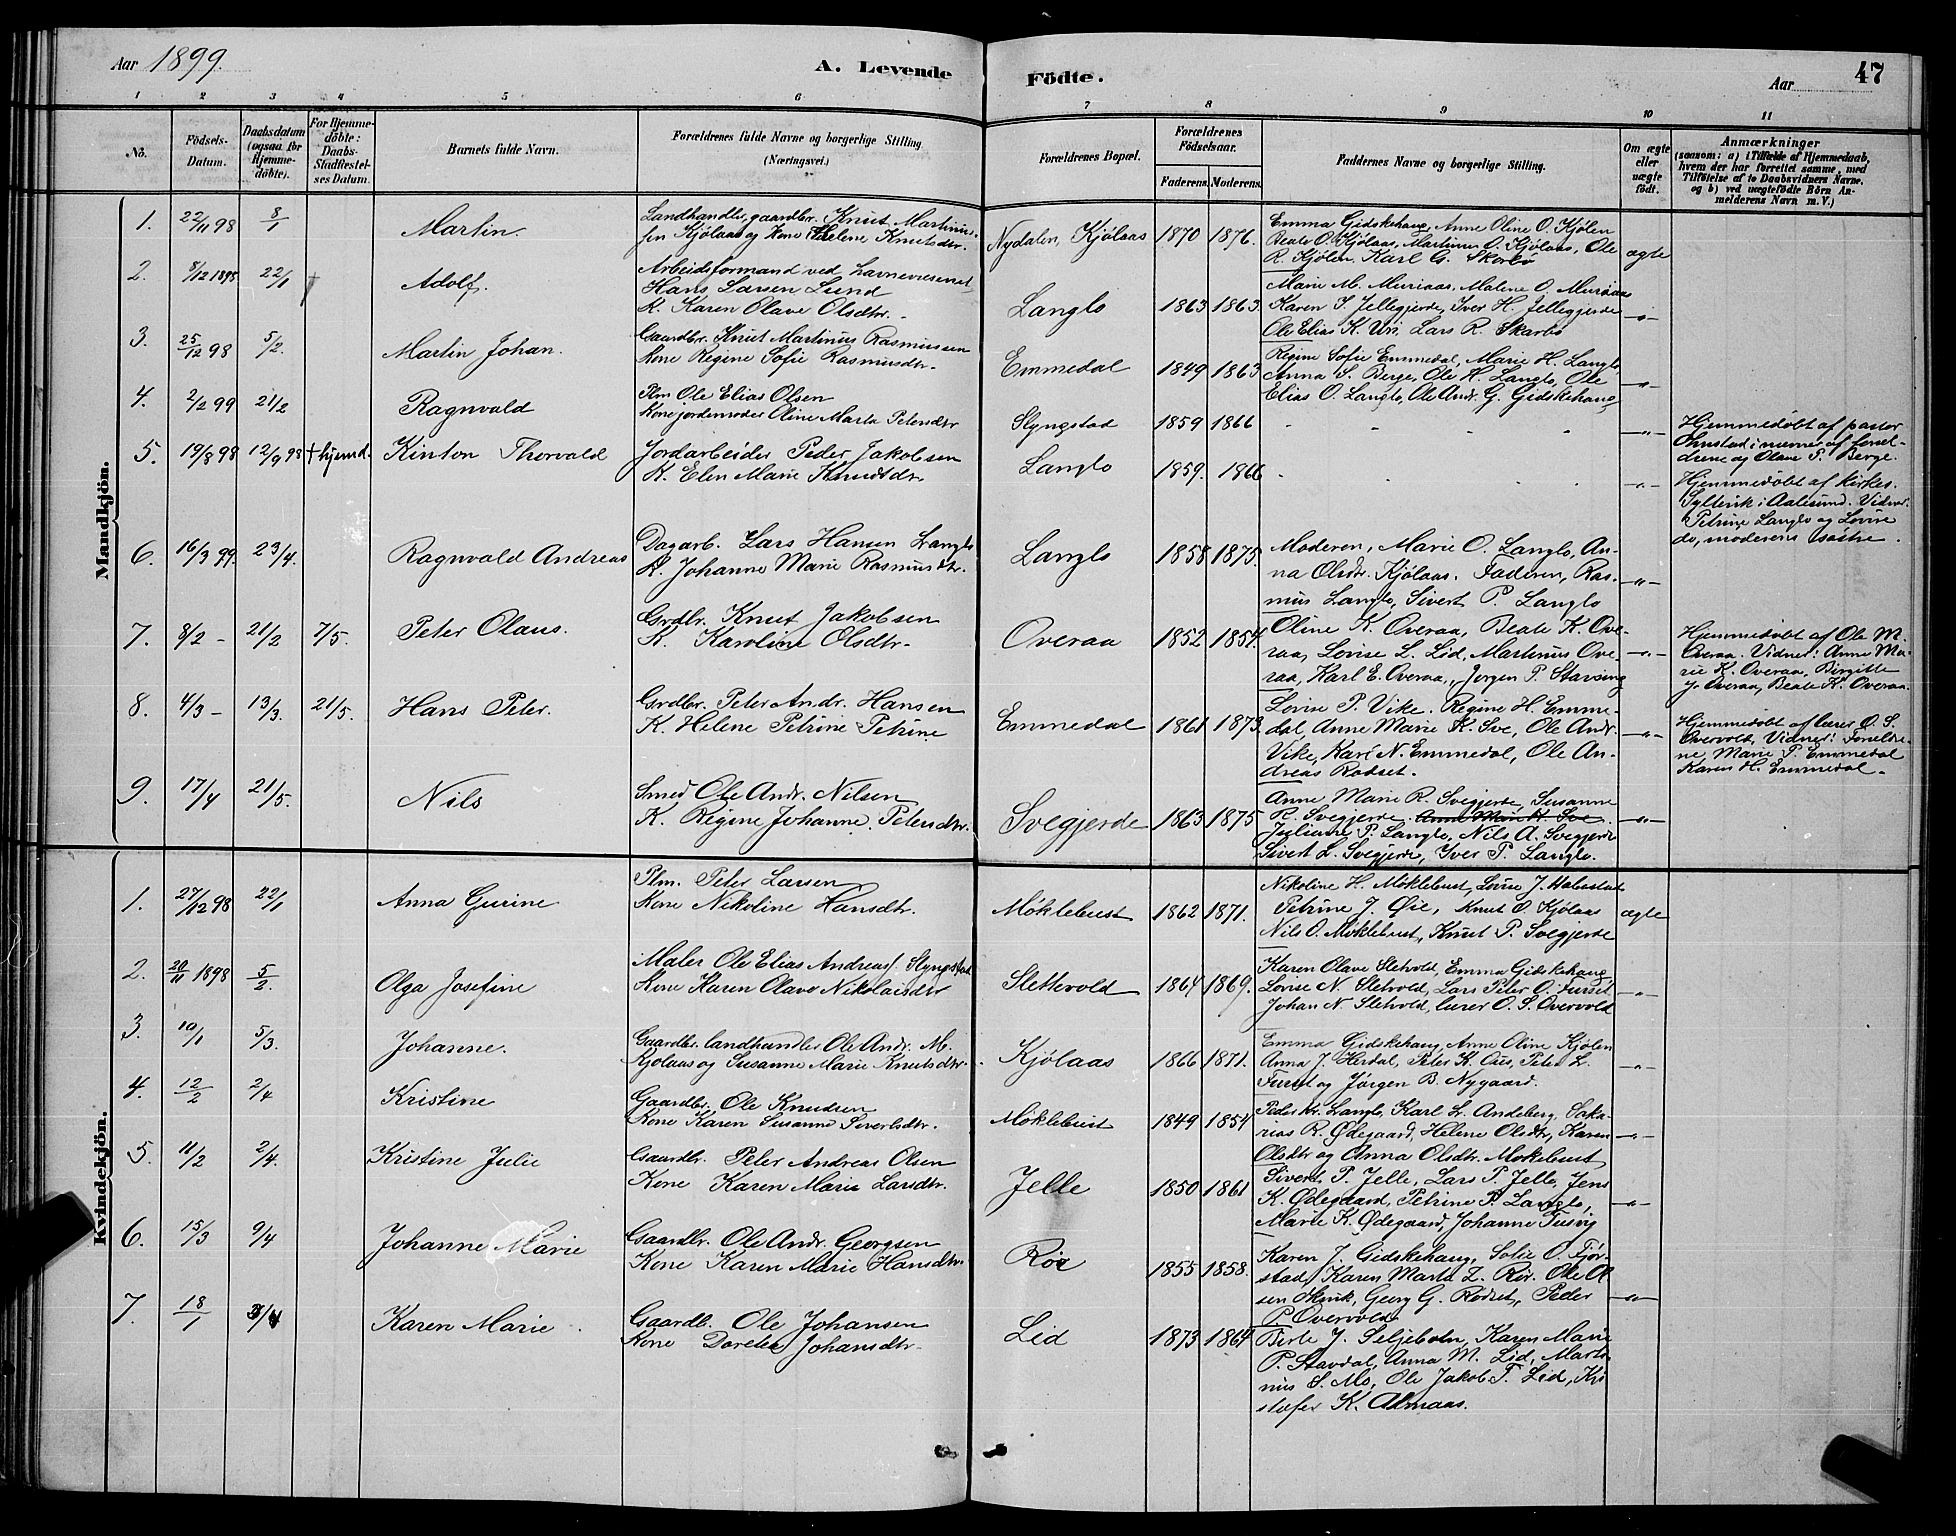 Aar 1899.
A. Levende Födte.
Aar
47
1 2 3 4 5 6 7 8 9 10 11
No.
Födsels-Datum.
Daabsdatum (ogsaa for Hjemmedöbte).
For Hjemmedöbte: Daabs-Stadfæstelses Datum.
Barnets fulde Navn.
Forældrenes fulde Navne og borgerlige Stilling (Næringsvei.)
Forældrenes Bopæl.
Forældrenes Födselsaar.
Faderens. Moderens.
Faddernes Navne og borgerlige Stilling.
Om ægte eller uægte födt.
Anmærkninger
(saasom: a) i Tilfælde af Hjemmedaab, hvem der har forrettet samme, med Tilföielse af to Daabsvidners Navne, og b) ved uægtefödte Börn Anmelderens Navn m. V.)
Mandkjön.
1. 22/11 98 8/1 Martin.
Landhandler, gaardbr. Knut Martinussen Kjölaas og Kone Helene Knutsdtr.
Nydalen, Kjölaas 1870 1876.
Emma Gidskehaug, Anne Oline O. Kjölen
Beate O. Kjölaas, Martinus O. Kjölaas, Ole
R. Kjölen. Karl G. Skorbö
ægte
2. 8/12 1898 22/1 Adolf.
Arbeidsformand ved havnevæsenet
Hans Larsen Lund
K. Karen Olave Olsdtr.
Langlo 1863 1863.
Marie M. Muriaas, Malene O. Muriaas
Karen S. Jellegjerde, Iver H. Jellegjerde
Ole Elias K. Uri, Lars R. Skarbö
-"-
3. 25/12 98 5/2. Martin Johan.
Gaardbr. Knut Martinus Rasmussen
Kone Regine Sofie Rasmusdtr.
Emmedal 1849 1863
Regine Sofie Emmedal, Marie H. Langlo
Anna S. Berge, Ole K. Langlo, Ole
Elias O. Langlo, Ole Andr. G. Gidskehaug
-"-
4. 2/2 99 21/2 Ragnvald
Plm Ole Elias Olsen
Kone jordemoder Oline Marta Petersdtr
Slyngstad 1859 1866
-"-
Hjemmedöbt af pastor
Thustad i nærvær af forældrene og Olave P. Berge.
5. 19/8 98 12/9 98 + hjemd. Kinton Thorvald
Jordarbeider Peder Jakobsen
K. Elen Marie Knudtdr
Langlo 1859. 1866
-"-
Hjemmedöbt af kirkes.
i Aalesund. Vidner
Petrine Langlo og Lovise
do, moderens söstre.
6. 16/3 99. 23/4. Ragnvald Andreas
Dagarb. Lars Hansen Langlo
K. Johanne Marie Rasmusdtr.
Langlo 1858 1875.
Moderen, Marie O. Langlo, Anna Olsdtr. Kjölaas. Faderen, Rasmus Langlo, Sivert P. Langlo
-"-
7. 8/2 - 21/2 7/5. Peter Olaus.
Grdbr. Knut Jakobsen
K. Karoline Olsdtr.
Overaa 1852 1854.
Oline K. Overaa, Beate K. Overaa, Lovise L. Lid, Martinus Overaa, Karl E. Overaa, Jörgen P. Stavseng
-"-
Hjemmedöbt af Ole M.
Overaa. Vidner: Anne Marie K. Overaa, Birgitte
J. Overaa, Beate K. Overaa.
8. 4/3 - 13/3. 21/5. Hans Peter.
Grdbr. Peter Andr. Hansen
K. Helene Petrine Petrine
Emmedal 1861 1873.
Lovise P. Vike. Regine H. Emmedal, Anne Marie K. Sve, Ole Andr.
Vike, Karl N. Emmedal, Ole Andreas Rödset.
-"-
Hjemmedöbt af lærer O. S.
Overvold, Vidner: Forældrene, Marie P. Emmedal
Karen H. Emmedal.
9. 17/4 21/5. Nils
Smed Ole Andr. Nilsen
K. Regine Johanne Petersdtr.
Svegjerde 1863 1875
Anne Marie R. Svegjerde, Susanne
R. Svegjerde. Anne Marie K. Sve.
Juliane P. Langlo, Nils A. Svegjerde
Sivert L. Svegjerde, Iver P. Langlo.
-"-
Kvindekjön.
1. 27/12 98 22/1 Anna Gurine
Plm. Peter Larsen
Kone Nikoline Hansdtr.
Möklebust 1862 1871.
Nikoline H. Möklebust, Lovise J. Habostad
Petrine J. Öie, Knut O. Kjölaas
Nils O. Möklebust, Knut P. Svegjerde
ægte
2. 20/11 1898 5/2. Olga Josefine
Maler Ole Elias Andreas. Slyngstad
Kone Karen Olave Nikolaisdtr
Slettevold 1864 1869.
Karen Olave Sletvold, Emma Gidskehaug
Lovise N. Sletvold, Lars Peter O. Furset
Johan N. Sletvold, lærer O. S. Overvold
-"-
3. 10/1 5/3. Johanne.
Gaardbr. landhandler Ole Andr. M.
Kjölaas og Susanne Marie Knutsdtr.
Kjölaas 1866 1871.
Emma Gidskehaug, Anne Oline Kjölen
Anna J. Herdal, Peter K. Aus, Peter L.
Furset og Jörgen B. Nygaard.
-"-
4. 12/2 2/4 Kristine
Gaardbr. Ole Knudsen
Kone Karen Susanne Sivertsdtr.
Möklebust 1849 1854
Peder Kr. Langlo, Karl L. Andeberg, Sakarias R. Ödegaard, Helene Olsdtr, Karen
Olsdtr og Anna Olsdtr. Möklebust
-"-
5. 11/2 2/4. Kristine Julie
Gaardbr. Peter Andreas Olsen
Kone Karen Marie Larsdtr.
Jelle 1850 1861
Sivert P. Jelle, Lars P. Jelle, Jens
K. Ödegaard, Petrine P. Langlo,
Marie K. Ödegaard, Johanne Tusvig
-"-
6. 15/3 9/4 Johanne Marie
Gaardbr. Ole Andr. Georgsen
Kone Karen Marie Hansdtr.
Röe 1855 1858.
Karen J. Gidskehaug, Sofie O. Fjörstad, Karen Marta Z. Röe. Ole Olsen Skuik, Georg G. Rödset, Peder
P. Overvold
-"-
7. 18/1 3/4 Karen Marie
Gaardb. Ole Johansen
Kone Dorthea Johansdtr.
Lid 1873 1864
Berte J. Seljebotn, Karen Marie
P. Stavdal, Anna M. Lid, Martinus S. Mo, Ole Jakob T. Lid, Kristofer K. Almaas.